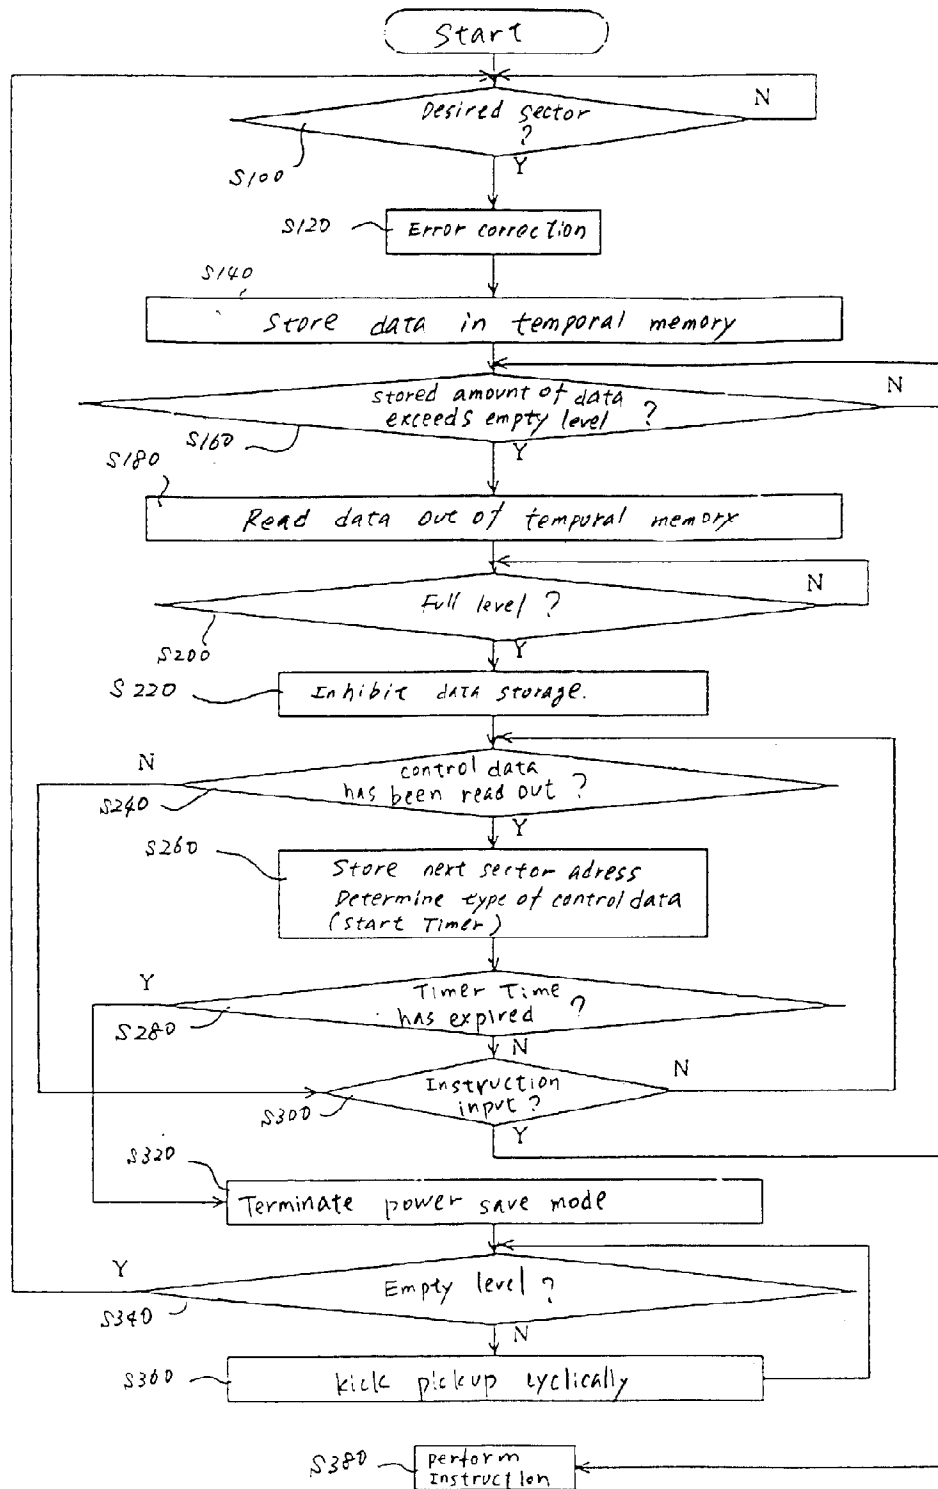 Start
Desired sector
?
N
S100
Y
S120
Error correction
S140
Store data in temporal memory
Stored amount of data
exceeds empty level ?
N
S160
Y
S180
Read data out of temporal memory
Full level ?
N
S200
Y
S220
Inhibit data storage.
N
control data
has been read out ?
S240
Y
S260
Store next sector adress
Determine type of control data
(Start Timer)
Y
Timer Time
has expired ?
S280
N
Instruction
input ?
N
S300
Y
S320
Terminate power save mode
Y
Empty level ?
S340
N
S360
kick pickup cyclically
S380
perform
Instruction